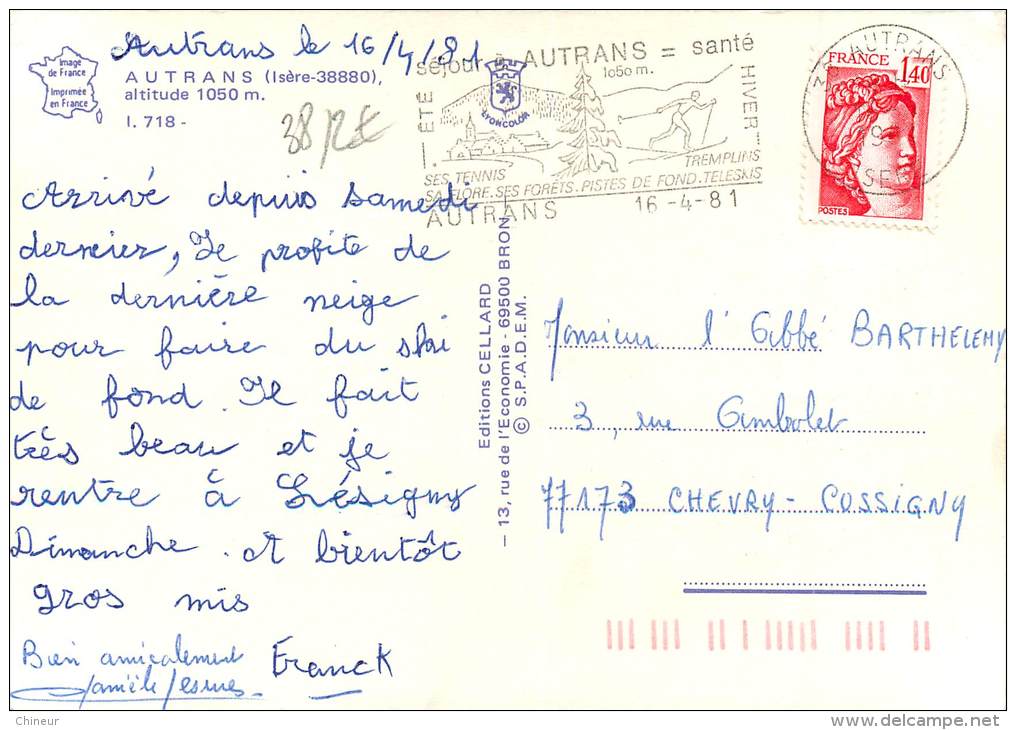 Image
de France
Imprimée
en France
Autrans le 16/4/81
AUTRANS (Isère-38880),
altitude 1050 m.
I. 718 -
Arrivé depuis samedi
dernier, Je profite de
la dernière neige
pour faire du ski
de fond. Il fait
très beau et je
rentre à Lésigny
Dimanche. A bientôt
gros mis
Bien amicalement
Franck
séjour à AUTRANS = santé
1050 m.
ÉTÉ
HIVER
LYONCOLOR
SES TENNIS
TREMPLINS
SA FLORE. SES FORÊTS. PISTES DE FOND. TELESKIS
AUTRANS
16-4-81
Editions CELLARD
- 13, rue de l'Economie - 69500 BRON -
© S.P.A.D.E.M.
38 AUTRANS
FRANCE
1,40
POSTES
Monsieur l'Abbé BARTHELEMY
3, rue Gambolet
77173 CHEVRY-COSSIGNY
Chineur
delcampe.net